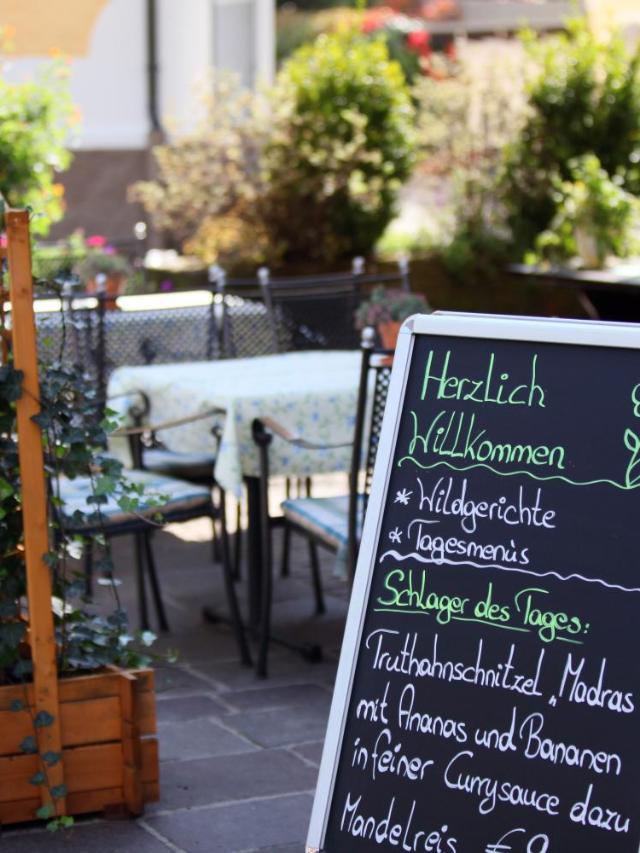 Herzlich
Willkommen
* Wildgerichte
* Tagesmenüs
Schlager des Tages:
Truthahnschnitzel „Madras
mit Ananas und Bananen
in feiner Currysauce dazu
Mandelreis €